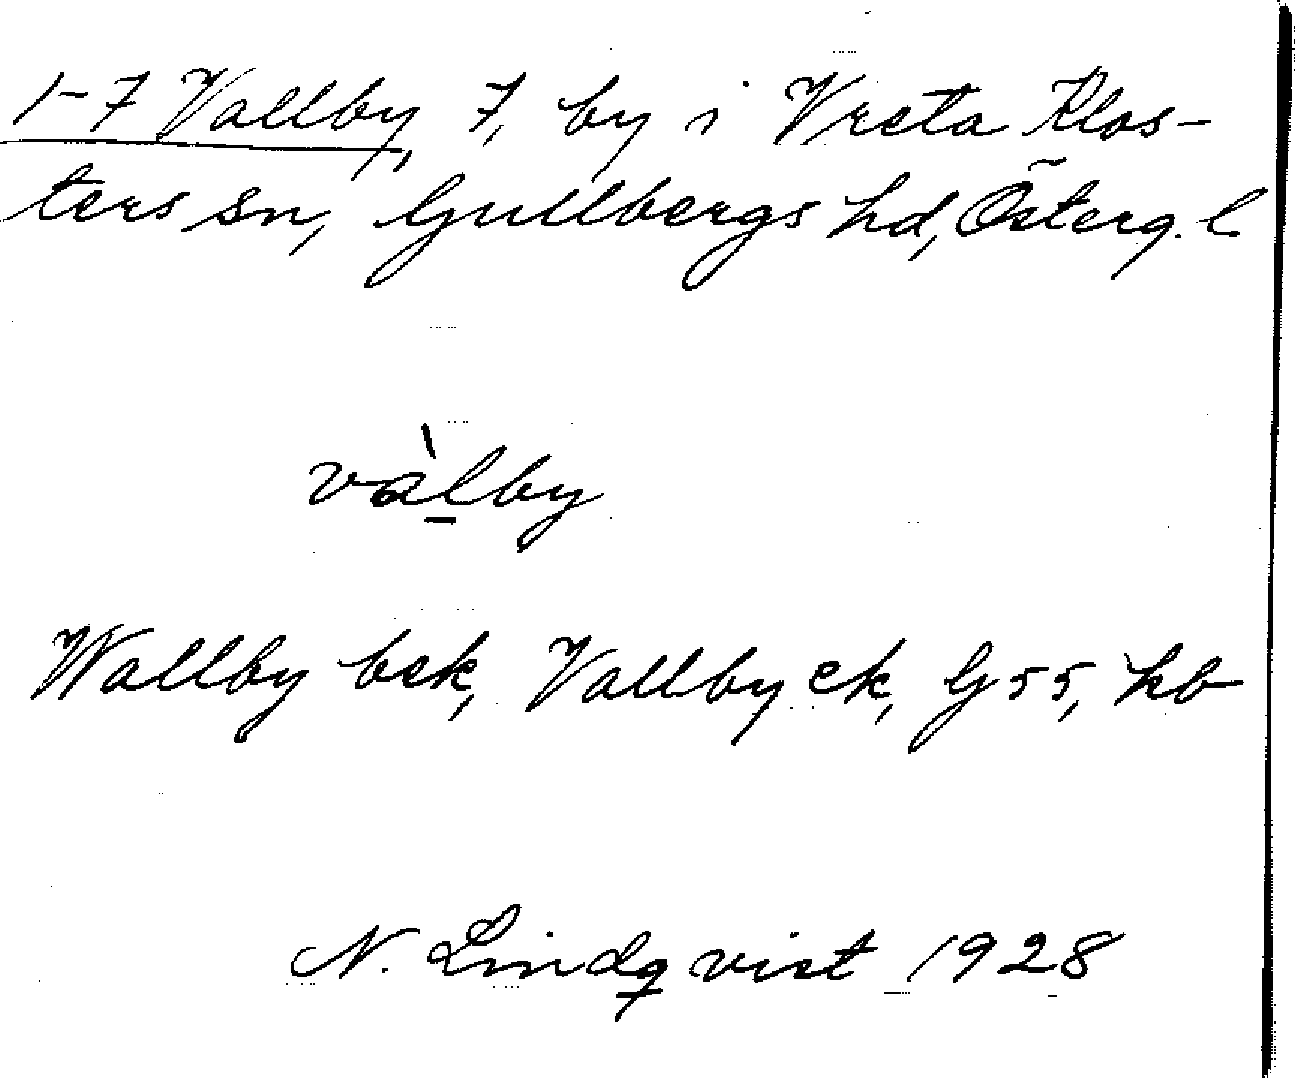 1-7 Vallby, 7, by i Vreta Klos-
ters sn, Gullbergs hd, Österg. l
vàl̲by
Wallby bek, Vallby ek, G 55, hb
N. Lindqvist 1928